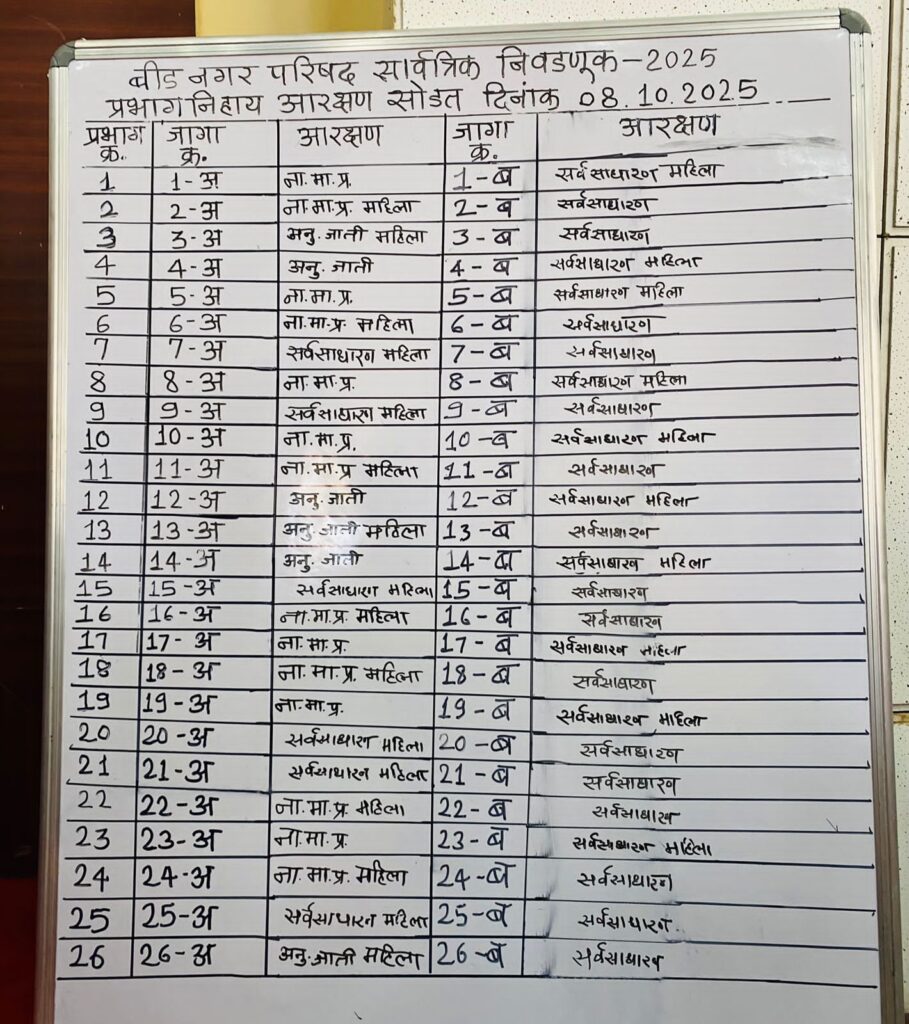 बीड नगर परिषद सार्वत्रिक निवडणूक-2025
प्रभाग निहाय आरक्षण सोडत दिनांक 08.10.2025
प्रभाग क्र. जागा क्र. आरक्षण जागा क्र. आरक्षण
1 1-अ ना.मा.प्र. 1-ब सर्वसाधारण महिला
2 2-अ ना.मा.प्र. महिला 2-ब सर्वसाधारण
3 3-अ अनु.जाती महिला 3-ब सर्वसाधारण
4 4-अ अनु.जाती 4-ब सर्वसाधारण महिला
5 5-अ ना.मा.प्र. 5-ब सर्वसाधारण महिला
6 6-अ ना.मा.प्र. महिला 6-ब सर्वसाधारण
7 7-अ सर्वसाधारण महिला 7-ब सर्वसाधारण
8 8-अ ना.मा.प्र. 8-ब सर्वसाधारण महिला
9 9-अ सर्वसाधारण महिला 9-ब सर्वसाधारण
10 10-अ ना.मा.प्र. 10-ब सर्वसाधारण महिला
11 11-अ ना.मा.प्र महिला 11-ब सर्वसाधारण
12 12-अ अनु.जाती 12-ब सर्वसाधारण महिला
13 13-अ अनु.जाती महिला 13-ब सर्वसाधारण
14 14-अ अनु.जाती 14-ब सर्वसाधारण महिला
15 15-अ सर्वसाधारण महिला 15-ब सर्वसाधारण
16 16-अ ना.मा.प्र. महिला 16-ब सर्वसाधारण
17 17-अ ना.मा.प्र. 17-ब सर्वसाधारण महिला
18 18-अ ना.मा.प्र. महिला 18-ब सर्वसाधारण
19 19-अ ना.मा.प्र. 19-ब सर्वसाधारण महिला
20 20-अ सर्वसाधारण महिला 20-ब सर्वसाधारण
21 21-अ सर्वसाधारण महिला 21-ब सर्वसाधारण
22 22-अ ना.मा.प्र. महिला 22-ब सर्वसाधारण
23 23-अ ना.मा.प्र. 23-ब सर्वसाधारण महिला
24 24-अ ना.मा.प्र. महिला 24-ब सर्वसाधारण
25 25-अ सर्वसाधारण महिला 25-ब सर्वसाधारण.
26 26-अ अनु.जाती महिला 26-ब सर्वसाधारण